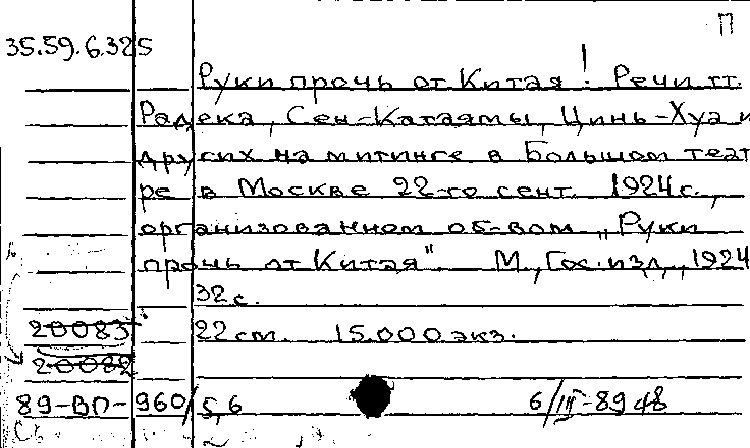 П
35.59.6.325
Руки прочь от Китая! Речи тт.
Радека, Сен-Катаямы, Цинь-Хуа и
других на митинге в Большом теат
ре в Москве 22-го сент. 1924 г.,
организованном об-вом „Руки
прочь от Китая". М., Гос. изд., 1924
32 с.
20083 22 см. 15.000 экз.
20082
89-ВП-960/5,6 6/III-89 48